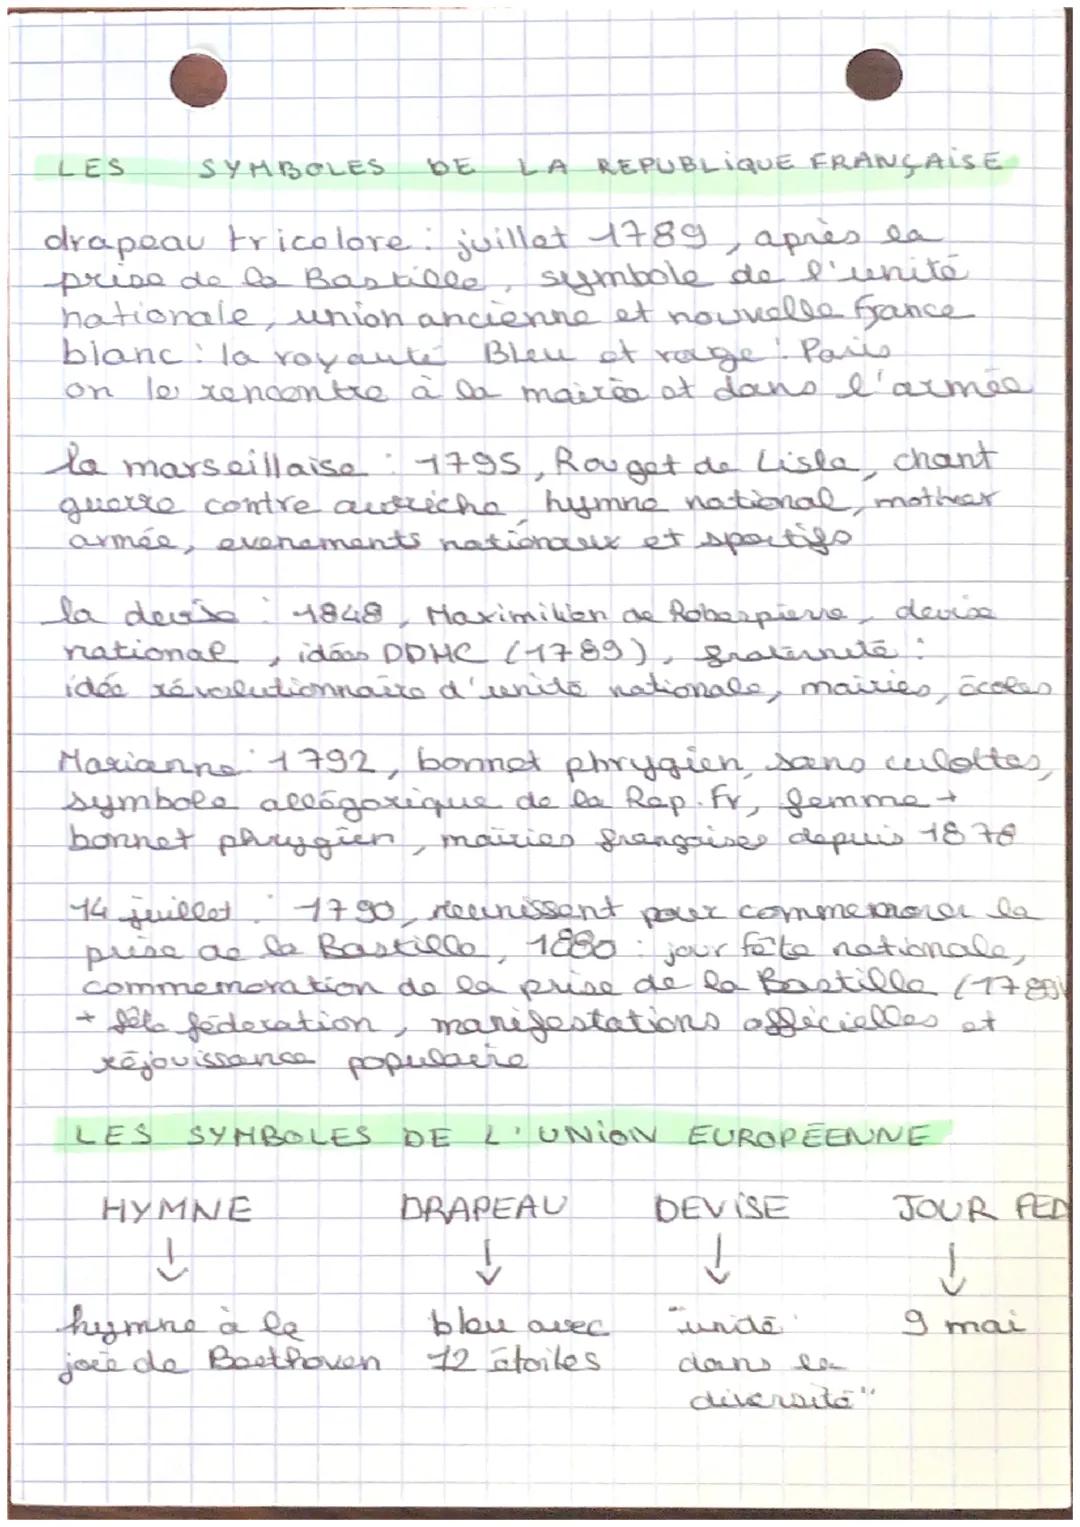 LES SYMBOLES DE LA REPUBLIQUE FRANÇAISE
drapeau tricolore : juillet 1789, après la
prise de la Bastille, symbole de l'unité
nationale, union ancienne et nouvelle France
blanc : la royauté Bleu et rouge : Paris
on le rencontre à la mairie et dans l'armée
la marseillaise : 1795, Rouget de Lisle, chant
guerre contre autriche, hymne national, motiver
armée, evenements nationaux et sportifs
la devise : 1848, Maximilien de Robespierre, devise
national, idées DDHC (1789), fraternité :
idée révolutionnaire d'unité nationale, mairies, écoles
Marianne : 1792, bonnet phrygien, sans culottes,
symbole allégorique de la Rep. Fr, femme +
bonnet phrygien, mairies françaises depuis 1878
14 juillet : 1790, reunissent pour commemorer la
prise de la Bastille, 1880 : jour fête nationale,
commemoration de la prise de la Bastille (1789)
+ fête féderation, manifestations officielles et
réjouissance populaire
LES SYMBOLES DE L'UNION EUROPÉENNE
HYMNE DRAPEAU DEVISE JOUR FED
↓ ↓ ↓ ↓
hymne à la bleu avec "unité 9 mai
joie de Beethoven 12 étoiles dans la
diversité"